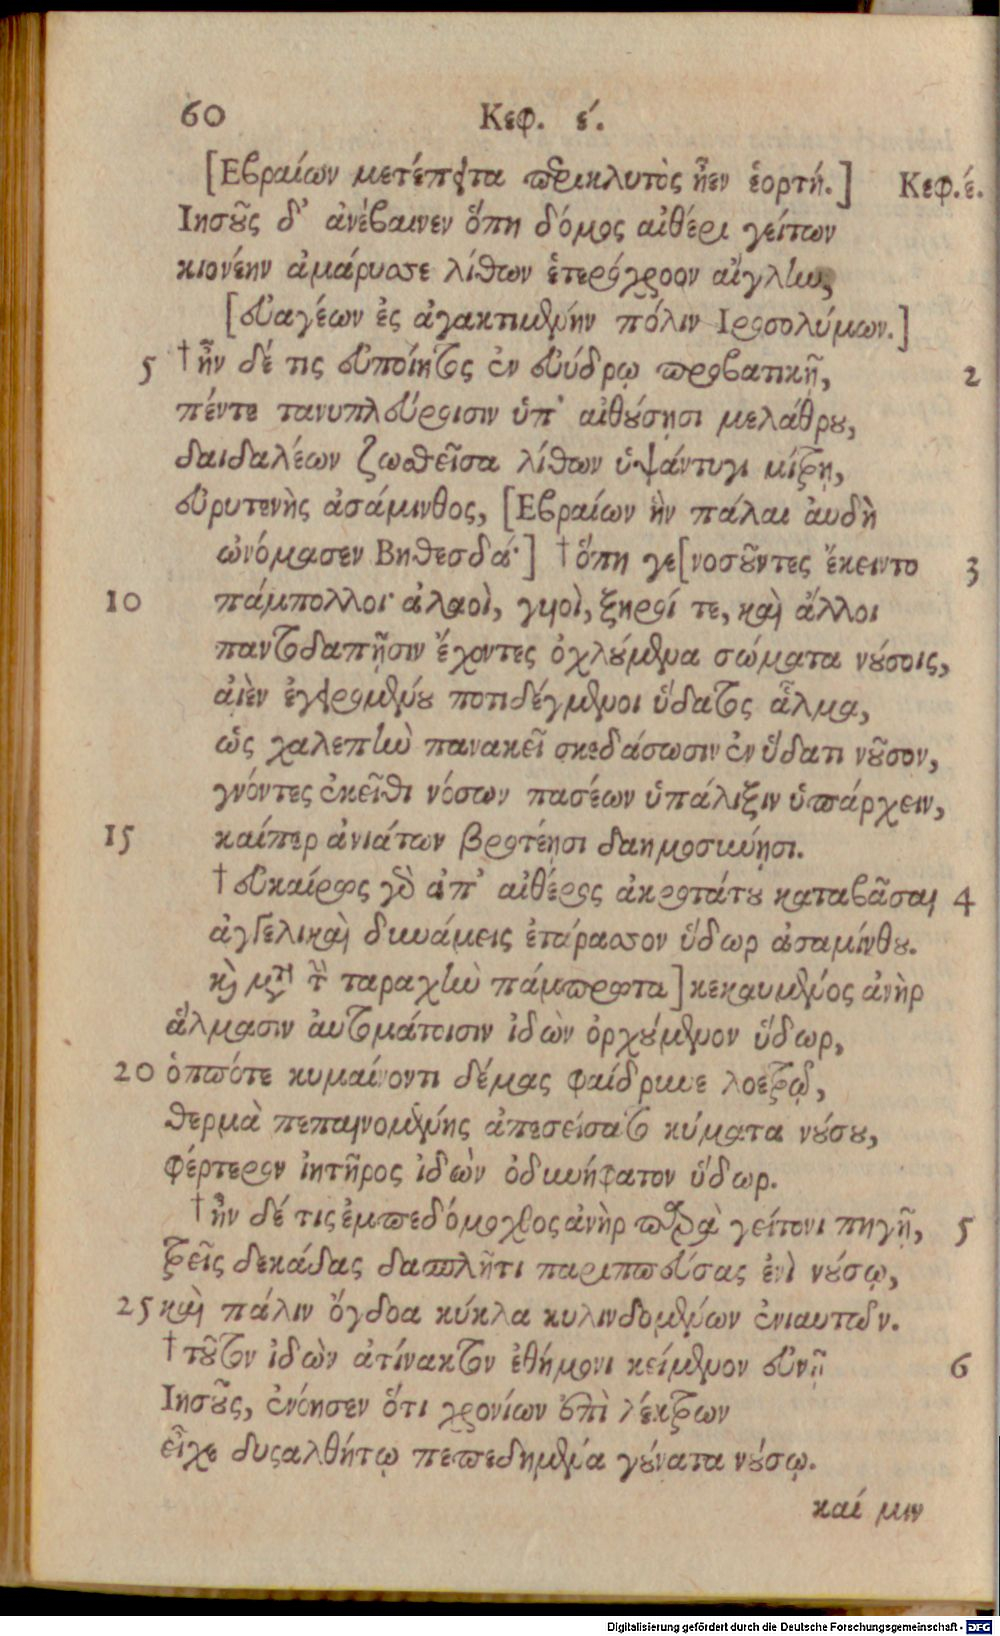 60 Κεφ. έ.
[Εβραίων μετέπειτα περικλυτὸς ἦεν ἑορτή.] Κεφ.έ.
Ιησοῦς δ' ἀνέβαινεν ὅπη δόμος αἰθέρι γείτων
κιονέην ἀμάρυσσε λίθων ἑτερόχροον αἴγλην,
[εὐαγέων ἐς ἀγακτιμένην πόλιν Ιεροσολύμων.]
5 †ἦν δέ τις εὐποίητος ἐν εὐύδρῳ προβατικῇ, 2
πέντε τανυπλεύροισιν ὑπ' αἰθούσῃσι μελάθρου,
δαιδαλέων ζωσθεῖσα λίθων ὑψάντυγι μίτρῃ,
εὐρυτενὴς ἀσάμινθος, [Εβραίων ἣν πάλαι ἀυδὴ
ὠνόμασεν Βηθεσδά·] †ὅπη γε[νοσοῦντες ἔκειντο 3
10 πάμπολλοι· ἀλαοὶ, γυιοὶ, ξηροί τε, καὶ ἄλλοι
παντοδαπῇσιν ἔχοντες ὀχλούμενα σώματα νούσοις,
ἀιὲν ἐγειρομένου ποτιδέγμενοι ὕδατος ἆλμα,
ὡς χαλεπὴν πανακεῖ σκεδάσωσιν ἐν ὕδατι νοῦσον,
γνόντες ἐκεῖθι νόσων πασέων ὑπάλιξιν ὑπάρχειν,
15 καίπερ ἀνιάτων βροτέῃσι δαημοσύνῃσι.
† εὐκαίρως γὰρ ἀπ' αἰθέρος ἀκροτάτου καταβᾶσαι 4
ἀγγελικαὶ δυνάμεις ἐτάρασσον ὕδωρ ἀσαμίνθου.
καὶ μετὰ τὴν ταραχὴν πάμπρωτα] κεκαυμένος ἀνὴρ
ἅλμασιν ἀυτομάτοισιν ἰδὼν ὀρχούμενον ὕδωρ,
20 ὁππότε κυμαίνοντι δέμας φαίδρυνε λοετρῷ,
θερμὰ πεπαινομένης ἀπεσείσατο κύματα νούσου,
φέρτερον ἰητῆρος ἰδὼν ὀδυνήφατον ὕδωρ.
†ἦν δέ τις ἐμπεδόμοχθος ἀνὴρ παρὰ γείτονι πηγῇ, 5
τρεῖς δεκάδας δασπλῆτι παριππεύσας ἐνὶ νούσῳ,
25 καὶ πάλιν ὄγδοα κύκλα κυλινδομένων ἐνιαυτῶν.
†τοῦτον ἰδὼν ἀτίνακτον ἐθήμονι κείμενον εὐνῇ 6
Ιησοῦς, ἐνόησεν ὅτι χρονίων ἐπὶ λέκτρων
εἶχε δυςαλθήτῳ πεπεδημένα γούνατα νούσῳ.
καί μιν
Digitalisierung gefördert durch die Deutsche Forschungsgemeinschaft - DFG